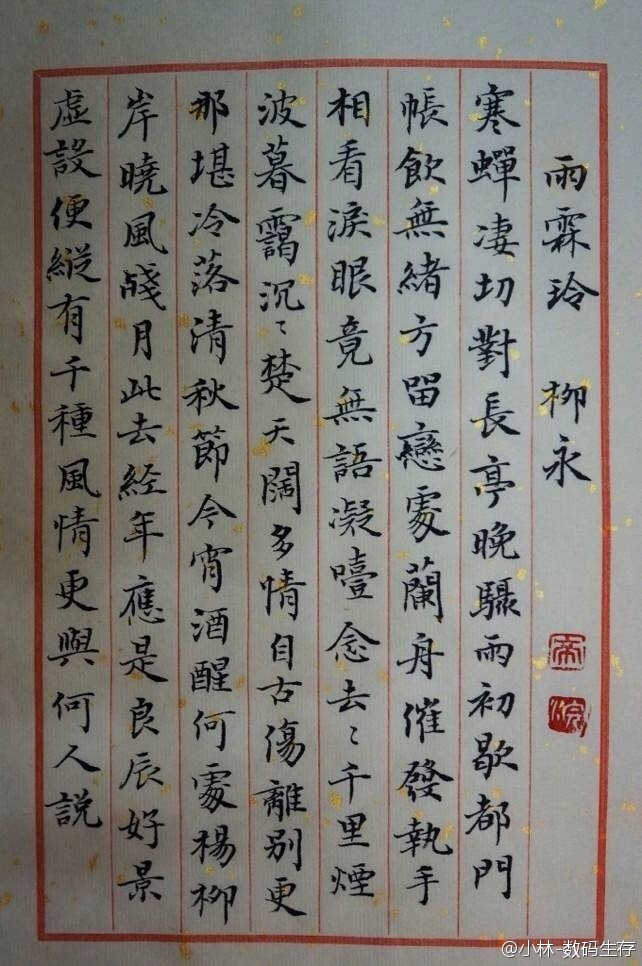 雨霖玲　柳永
寒蟬凄切對長亭晚驟雨初歇都門
帳飲無緒方留戀處蘭舟催發執手
相看淚眼竟無語凝噎念去〻千里煙
波暮靄沉〻楚天闊多情自古傷離別更
那堪冷落清秋節今宵酒醒何處楊柳
岸曉風殘月此去経年應是良辰好景
虛設便縦有千種風情更與何人説
@小林-数码生存